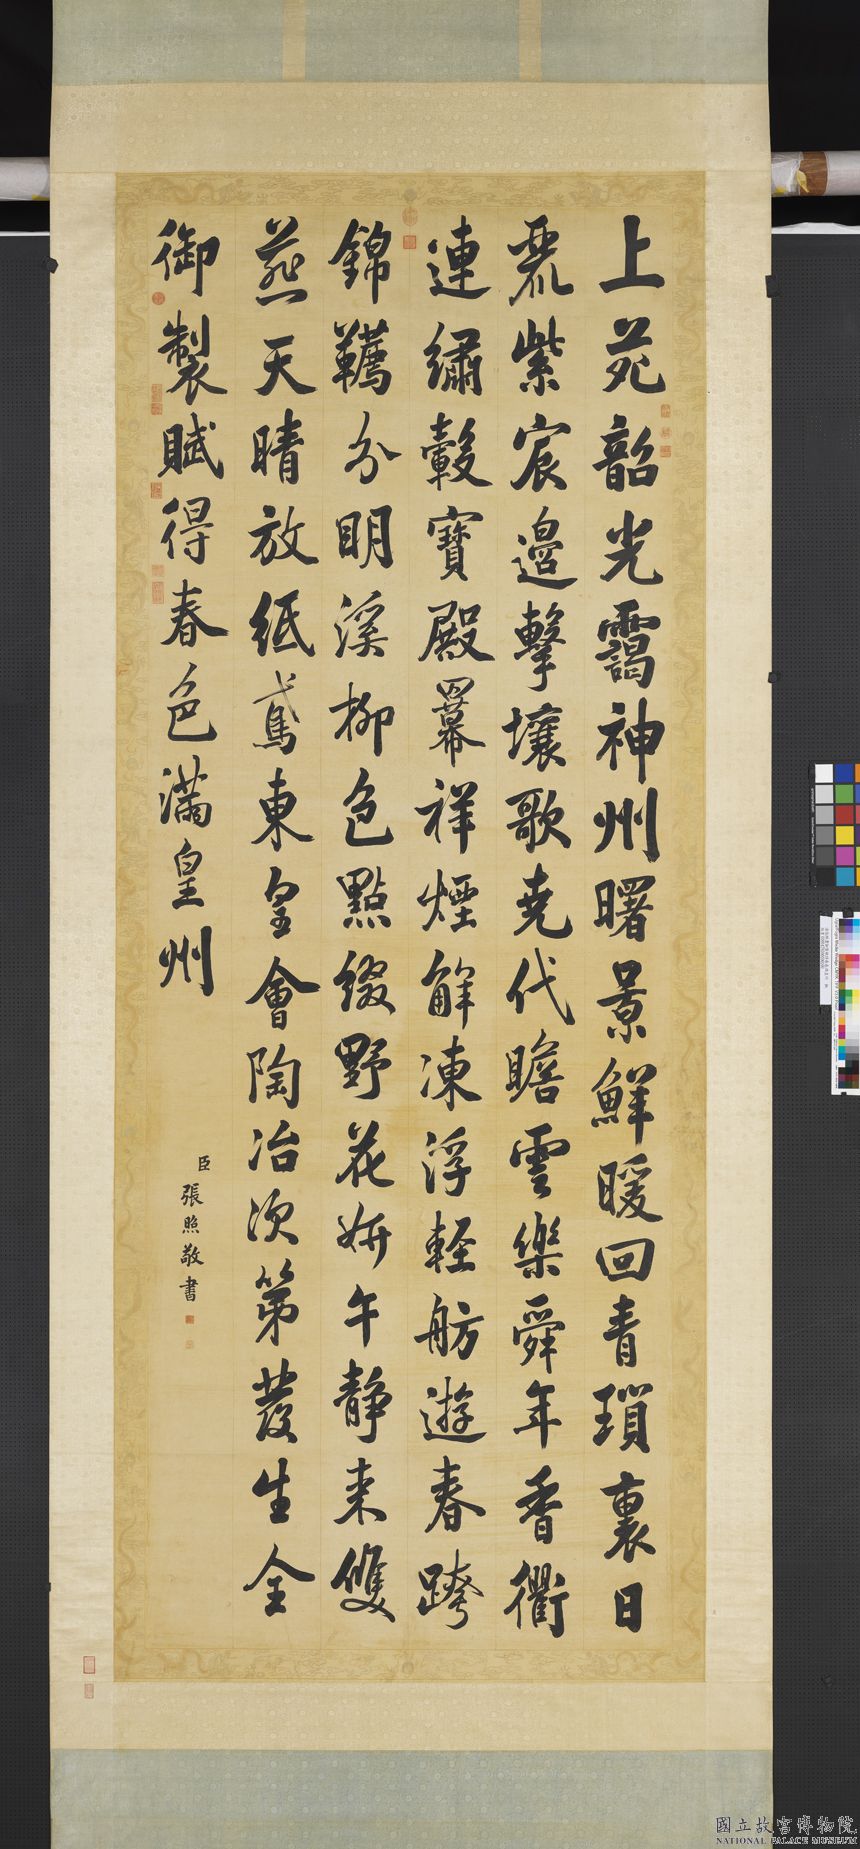 上苑韶光靄神州曙景鮮暖回青瑣裏日
麗紫宸邊擊壤歌堯代瞻雲樂舜年香衢
連繡轂寶殿羃祥煙解凍浮輕舫遊春跨
錦韉分明溪柳色點綴野花妍午靜来雙
燕天晴放紙鳶東皇會陶冶次第發生全
御製賦得春色滿皇州
臣張照敬書
國立故宮博物院
NATIONAL PALACE MUSEUM